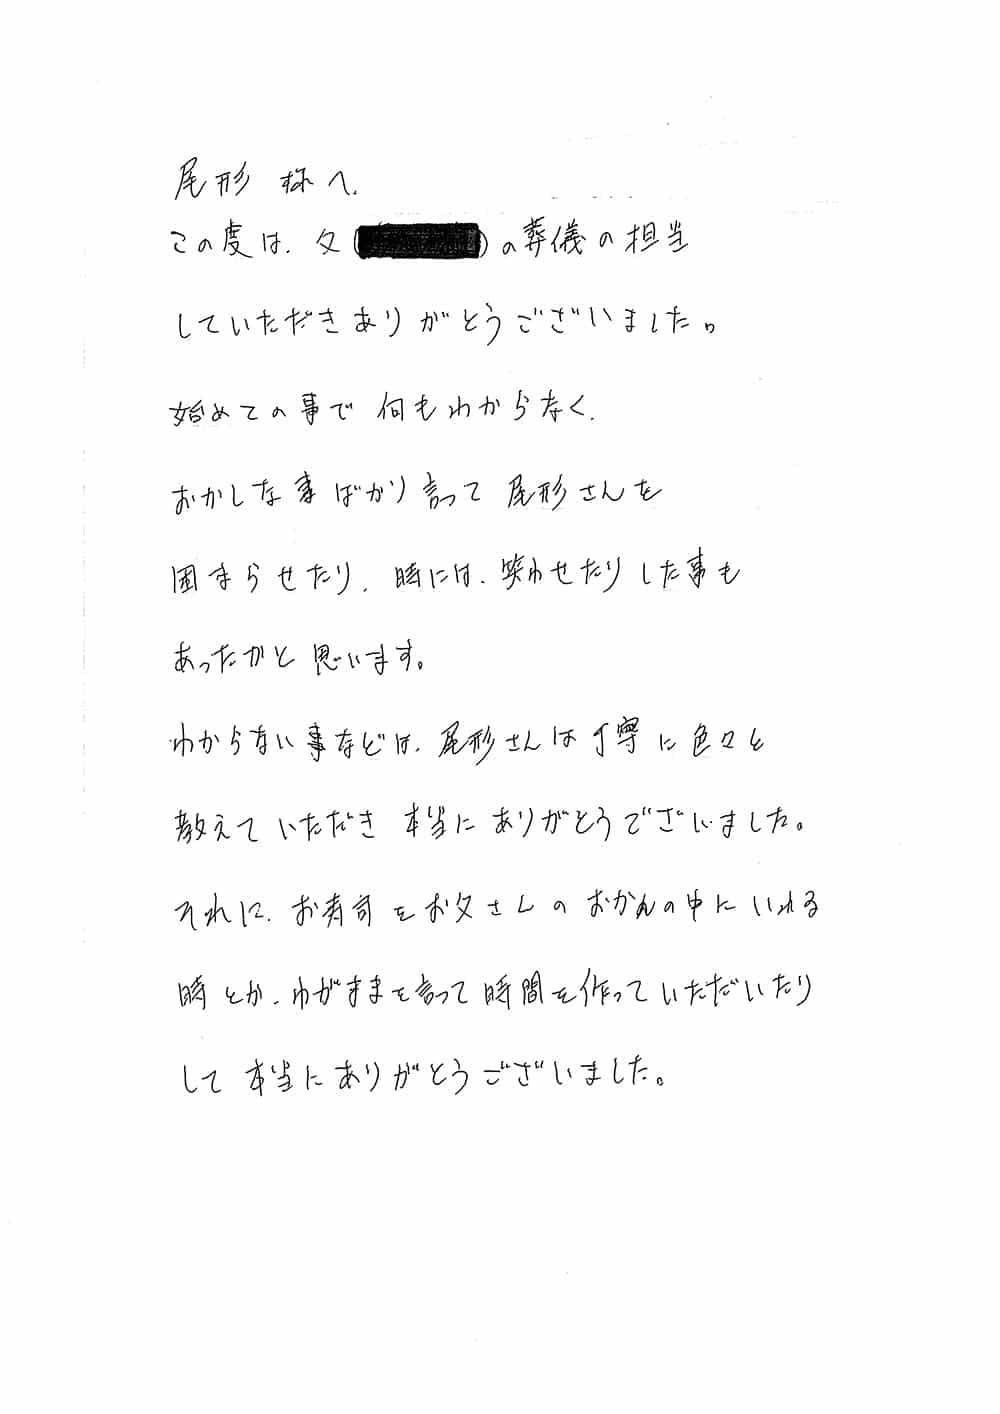 尾形 様へ、
この度は、父(　)の葬儀の担当
していただきありがとうございました。
始めての事で 何もわからなく、
おかしな事ばかり言って 尾形さんを
困まらせたり、時には、笑わせたりした事も
あったかと思います。
わからない事などは、尾形さんは丁寧に色々と
教えていただき 本当にありがとうございました。
それに、お寿司をお父さんのおかんの中にいれる
時とか、わがままを言って時間を作っていただいたり
して 本当にありがとうございました。